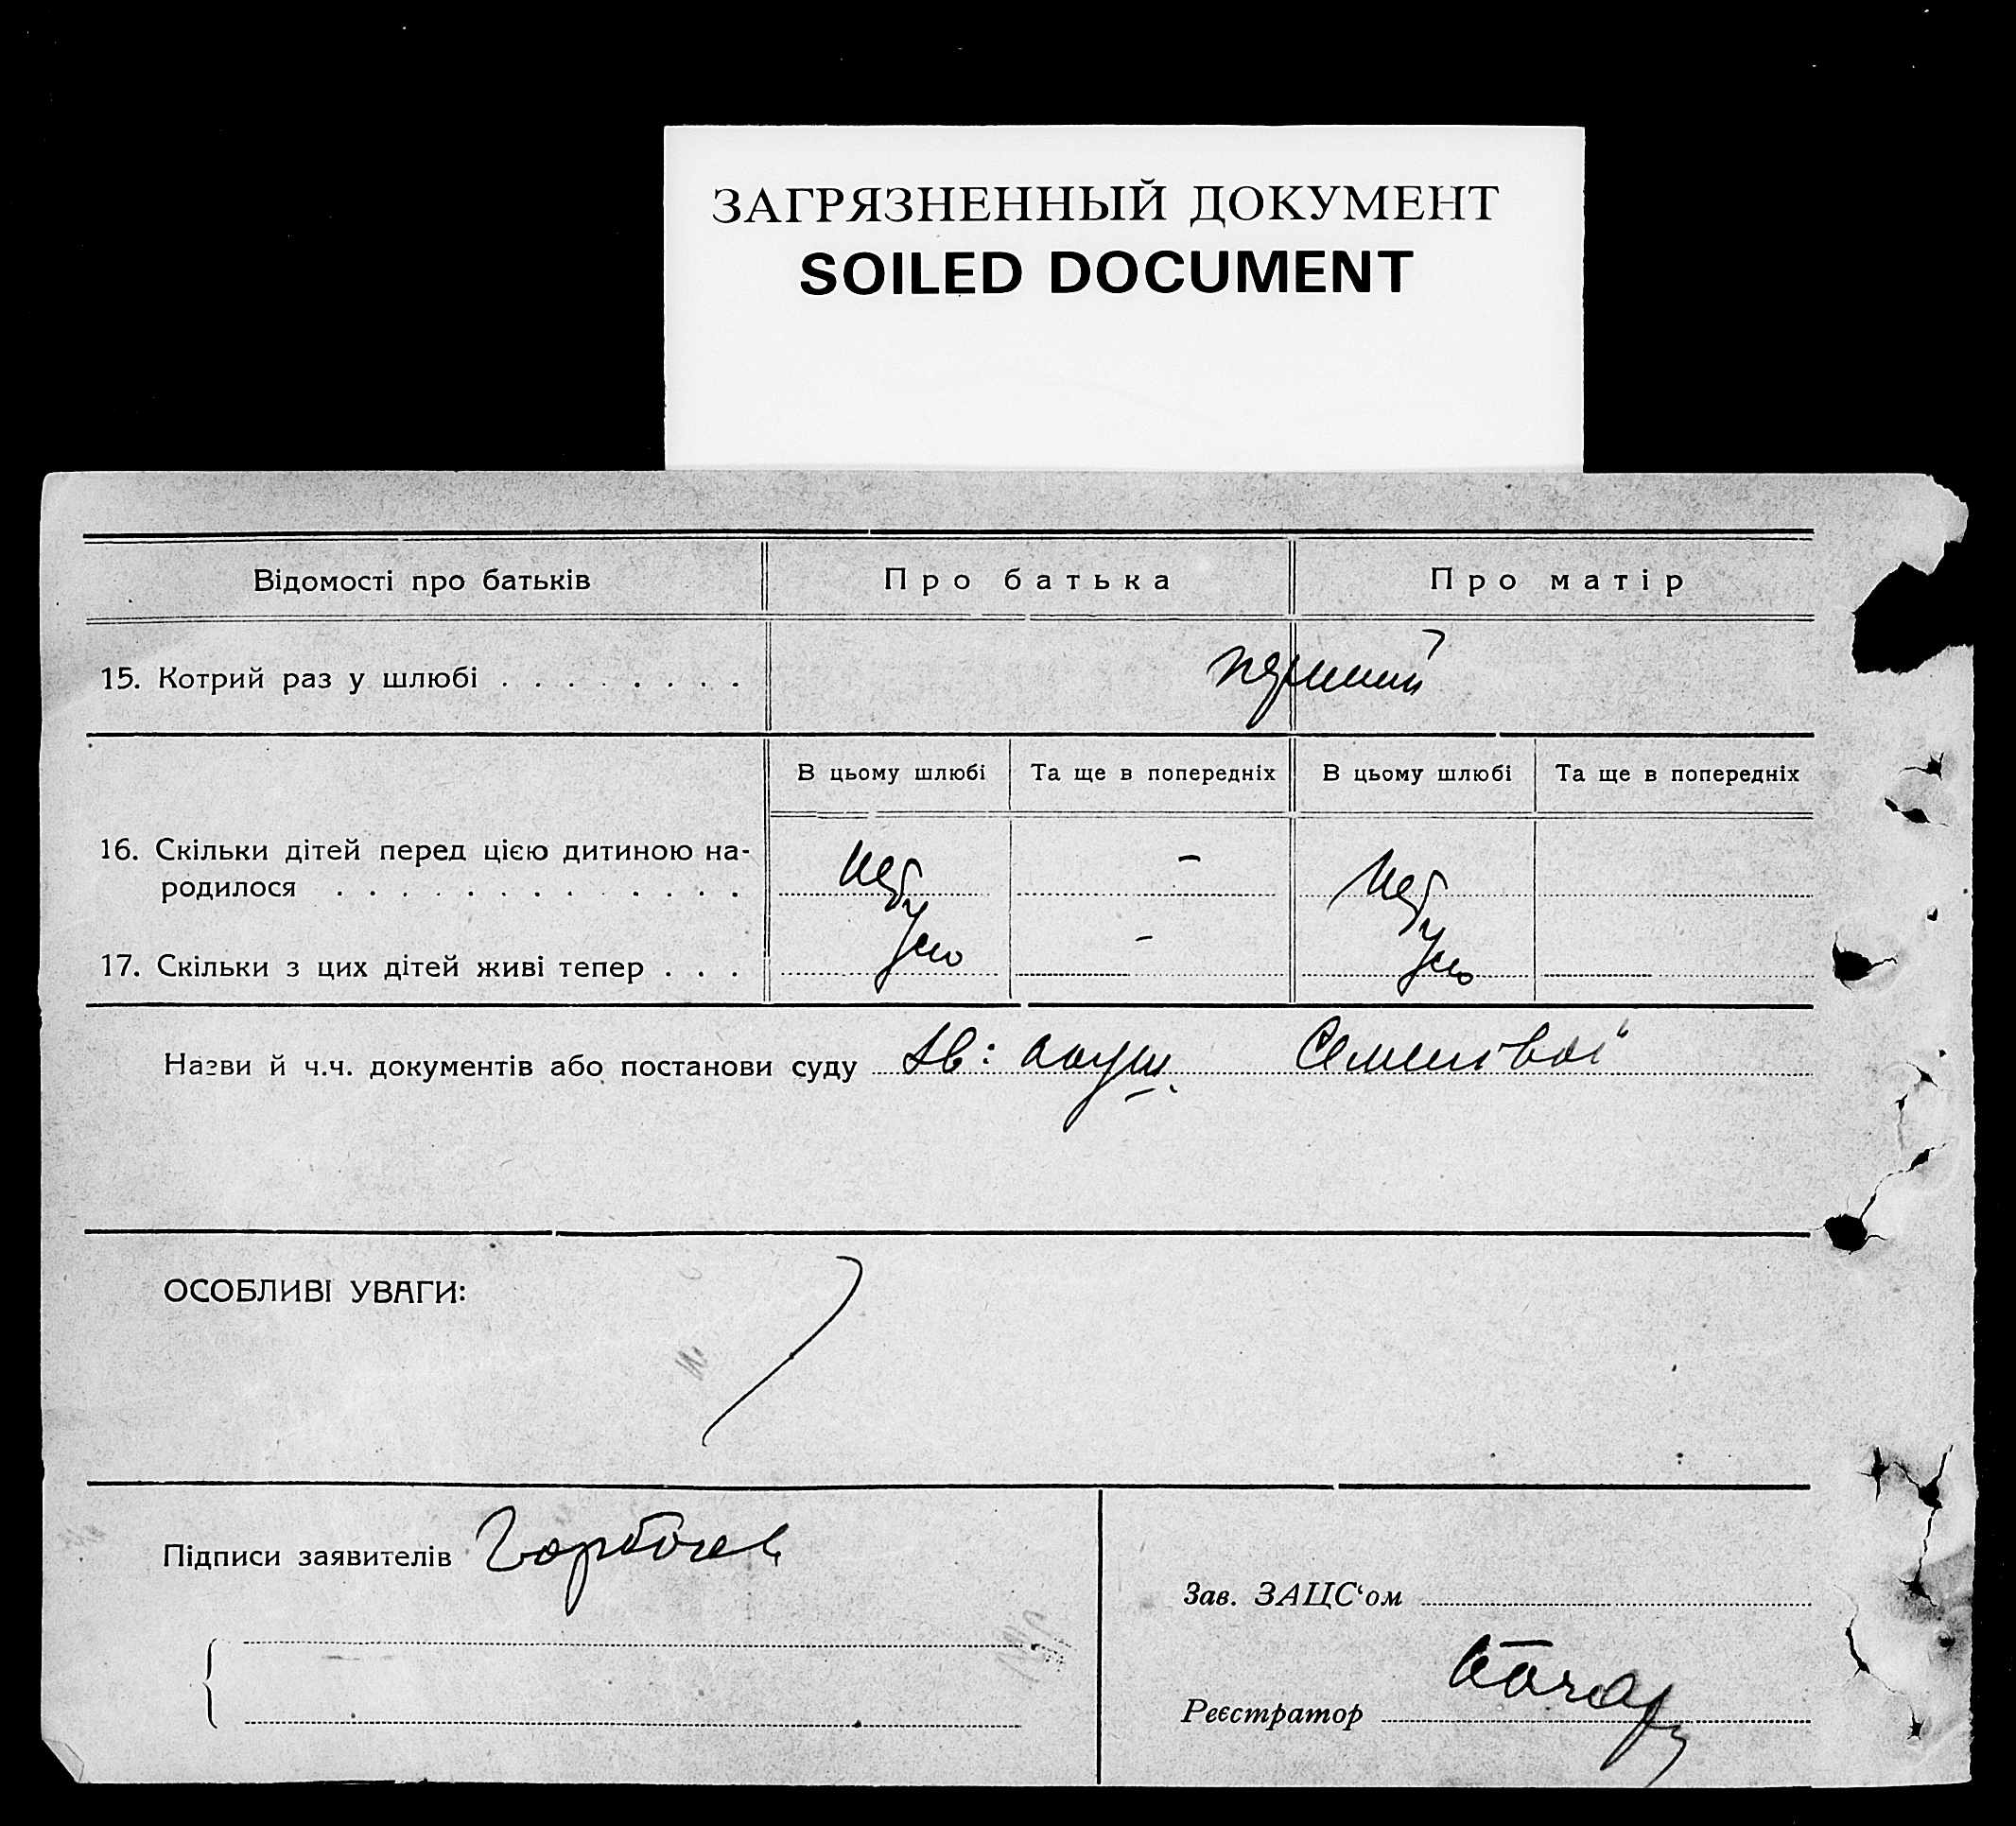 ЗАГРЯЗНЕННЫЙ ДОКУМЕНТ
SOILED DOCUMENT
Відомості про батьків Про батька Про матір
15. Котрий раз у шлюбі . . . . . . . . перший
В цьому шлюбі Та ще в попередніх В цьому шлюбі Та ще в попередніх
16. Скільки дітей перед цією дитиною на-
родилося . . . . . . . . . . . . . не б – не б
17. Скільки з цих дітей живі тепер . . . уло – уло
Назви й ч.ч. документів або постанови суду
ОСОБЛИВІ УВАГИ:
Підписи заявителів
Зав. ЗАЦС‘ом
Реєстратор